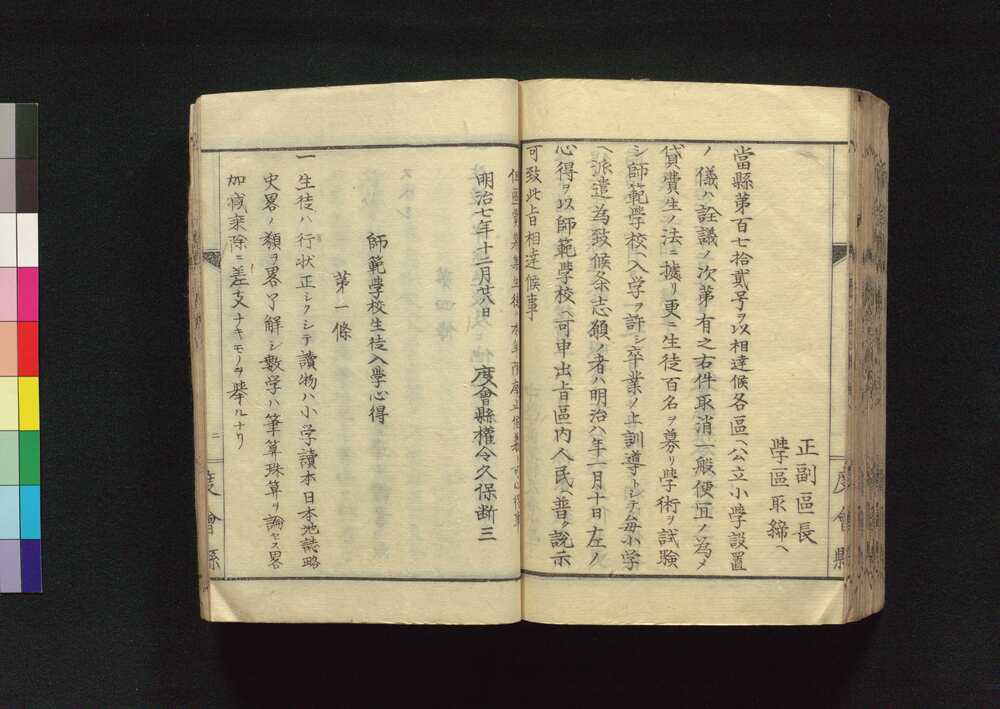 正副區長
學區取締ヘ
當縣第百七拾貳号ヲ以相達候各區ヘ公立小學設置
ノ儀ハ詮議ノ次第有之右件取消一般便宜ノ為メ
貸費生ノ法ニ據リ更ニ生徒百名ヲ募リ學術ヲ試験
シ師範學校ヘ入学ヲ許シ卒業ノ上訓導トシテ毎小学
ヘ派遣為致候条志願ノ者ハ明治八年一月十日左ノ
心得ヲ以師範學校ヘ可申出旨區内人民ヘ普ク説示
可致此旨相達候事
明治七年十二月廿八日
度會縣權令久保断三
師範學校生徒入學心得
第一條
一 生徒ハ行状正シクシテ讀物ハ小学讀本日本地誌略
史畧ノ類ヲ畧了解シ數学ハ筆算珠算ヲ論セス畧
加减乘除ニ差支ナキモノヲ擧ルナリ
二
度會縣
度會縣